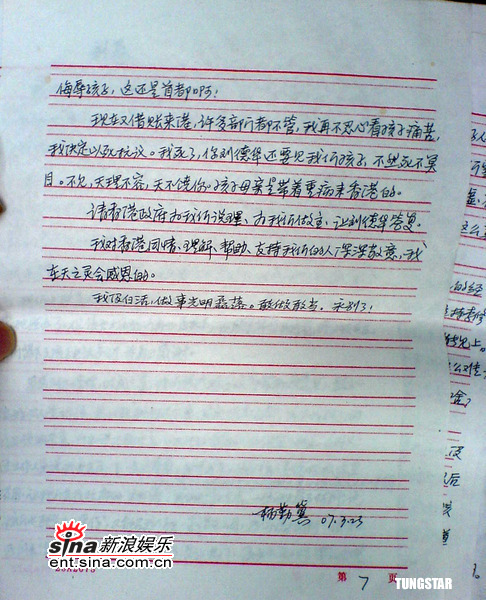 侮辱孩子，这还是首都啊！
现在又借账来港，许多部门都不管，我再不忍心看孩子痛苦，
我决定以死抗议。我死了，你刘德华还要见我们孩子，不然死不冥
目。不见，天理不容，天不饶你。孩子母亲是带着重病来香港的。
请香港政府为我们说理，为我们做主，让刘德华答复。
我对香港同情、理解、帮助、支持我们的人深深敬意，我
在天之灵会感恩的。
我没白活，做事光明磊落。敢做敢当。永别了！
杨勤冀 07.3.25
sina 新浪娱乐
ent.sina.com.cn
第 7 页
TUNGSTAR